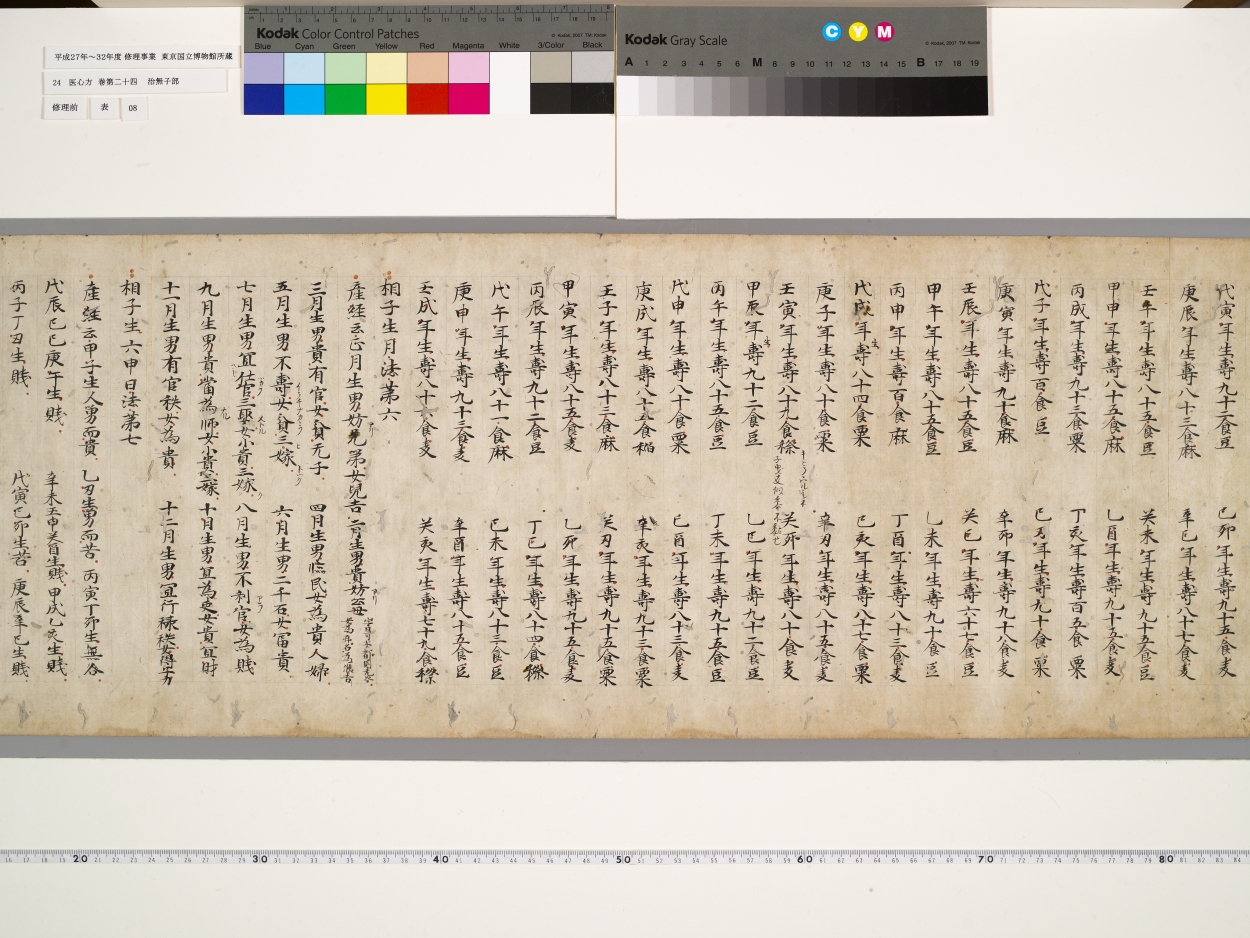 平成27年~32年度 修理事業 東京国立博物館所蔵
24 医心方 巻第二十四 治無子部
修理前 表 08
Kodak Color Control Patches
Blue Cyan Green Yellow Red Magenta White 3/Color Black
Kodak Gray Scale
C Y M
A 1 2 3 4 5 6 M 8 9 10 11 12 13 14 15 B 17 18 19
戊寅年生壽九十二食豆 己卯年生壽九十五食麦
庚辰年生壽八十三食麻 辛巳年生壽八十七食麦
壬午年生壽八十五食豆 癸未年生壽九十五食豆
甲申年生壽八十五食麻 乙酉年生壽九十五食麦
丙戌年生壽九十三食粟 丁亥年生壽百五食粟
戊子年生壽百食豆 己丑年生壽九十食粟
庚寅年生壽九十食麻 辛卯年生壽九十八食麦
壬辰年生壽八十五食豆 癸巳年生壽六十七食豆
甲午年生壽八十五食豆 乙未年生壽九十食豆
丙申年生壽百食麻 丁酉年生壽八十三食麦
戊戌年生壽八十四食粟 己亥年生壽八十七食粟
庚子年生壽八十食粟 辛丑年生壽八十五食麦
壬寅年生壽八十九食 癸卯年生壽八十食麦
甲辰年生壽九十二食豆 乙巳年生壽九十二食豆
丙午年生壽八十五食豆 丁未年生壽九十五食豆
戊申年生壽八十食粟 己酉年生壽八十三食麦
庚戌年生壽八十五食稲 辛亥年生壽九十三食粟
壬子年生壽八十三食麻 癸丑年生壽九十五食粟
甲寅年生壽八十五食麦 乙卯年生壽九十五食麦
丙辰年生壽九十二食豆 丁巳年生壽八十四食
戊午年生壽八十一食麻 己未年生壽八十三食豆
庚申年生壽九十三食麦 辛酉年生壽八十五食豆
壬戌年生壽八十六食麦 癸亥年生壽七十九食
相子生月法第六
産経云正月生男妨兄弟女兒吉 二月生男貴妨母
三月生男貴有官女貧无子 四月生男臨民女為貴人婦
五月生男不壽女貧三嫁 六月生男二千石女富貴
七月生男宜 官三娶女小貴三嫁 八月生男不利官女為賤
九月生男貴當為師女小貴三嫁 十月生男宜為吏女貴宜財
十一月生男有官秩女為貴 十二月生男宜行禄
相子生六甲日法第七
産経云甲子生人男而貴 乙丑生男而苦 丙寅丁卯生無谷
戊辰己巳庚午生賤 辛未壬申癸酉生賤 甲戌乙亥生賤
丙子丁丑生賤 戊寅己卯生苦 庚辰辛巳生賤
20 30 40 50 60 70 80